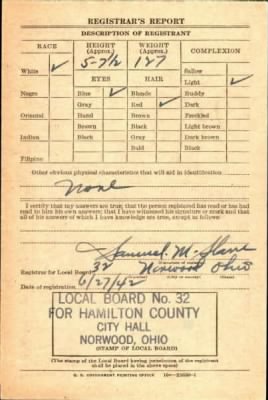 REGISTRAR'S REPORT
DESCRIPTION OF REGISTRANT
RACE HEIGHT (Approx.) WEIGHT (Approx.) COMPLEXION
5-7½ 127
White ✓ Sallow
EYES HAIR Light ✓
Negro Blue ✓ Blonde Ruddy
Gray Red ✓ Dark
Oriental Hazel Brown Freckled
Brown Black Light brown
Indian Black Gray Dark brown
Bald Black
Filipino
Other obvious physical characteristics that will aid in identification
None
I certify that my answers are true; that the person registered has read or has had
read to him his own answers; that I have witnessed his signature or mark and that
all of his answers of which I have knowledge are true, except as follows:
Samuel M.
Registrar for Local Board 32 Norwood Ohio
Date of registration 6/27/42
LOCAL BOARD No. 32
FOR HAMILTON COUNTY
CITY HALL
NORWOOD, OHIO
(STAMP OF LOCAL BOARD)
(The stamp of the Local Board having jurisdiction of the registrant
shall be placed in the above space.)
U. S. GOVERNMENT PRINTING OFFICE